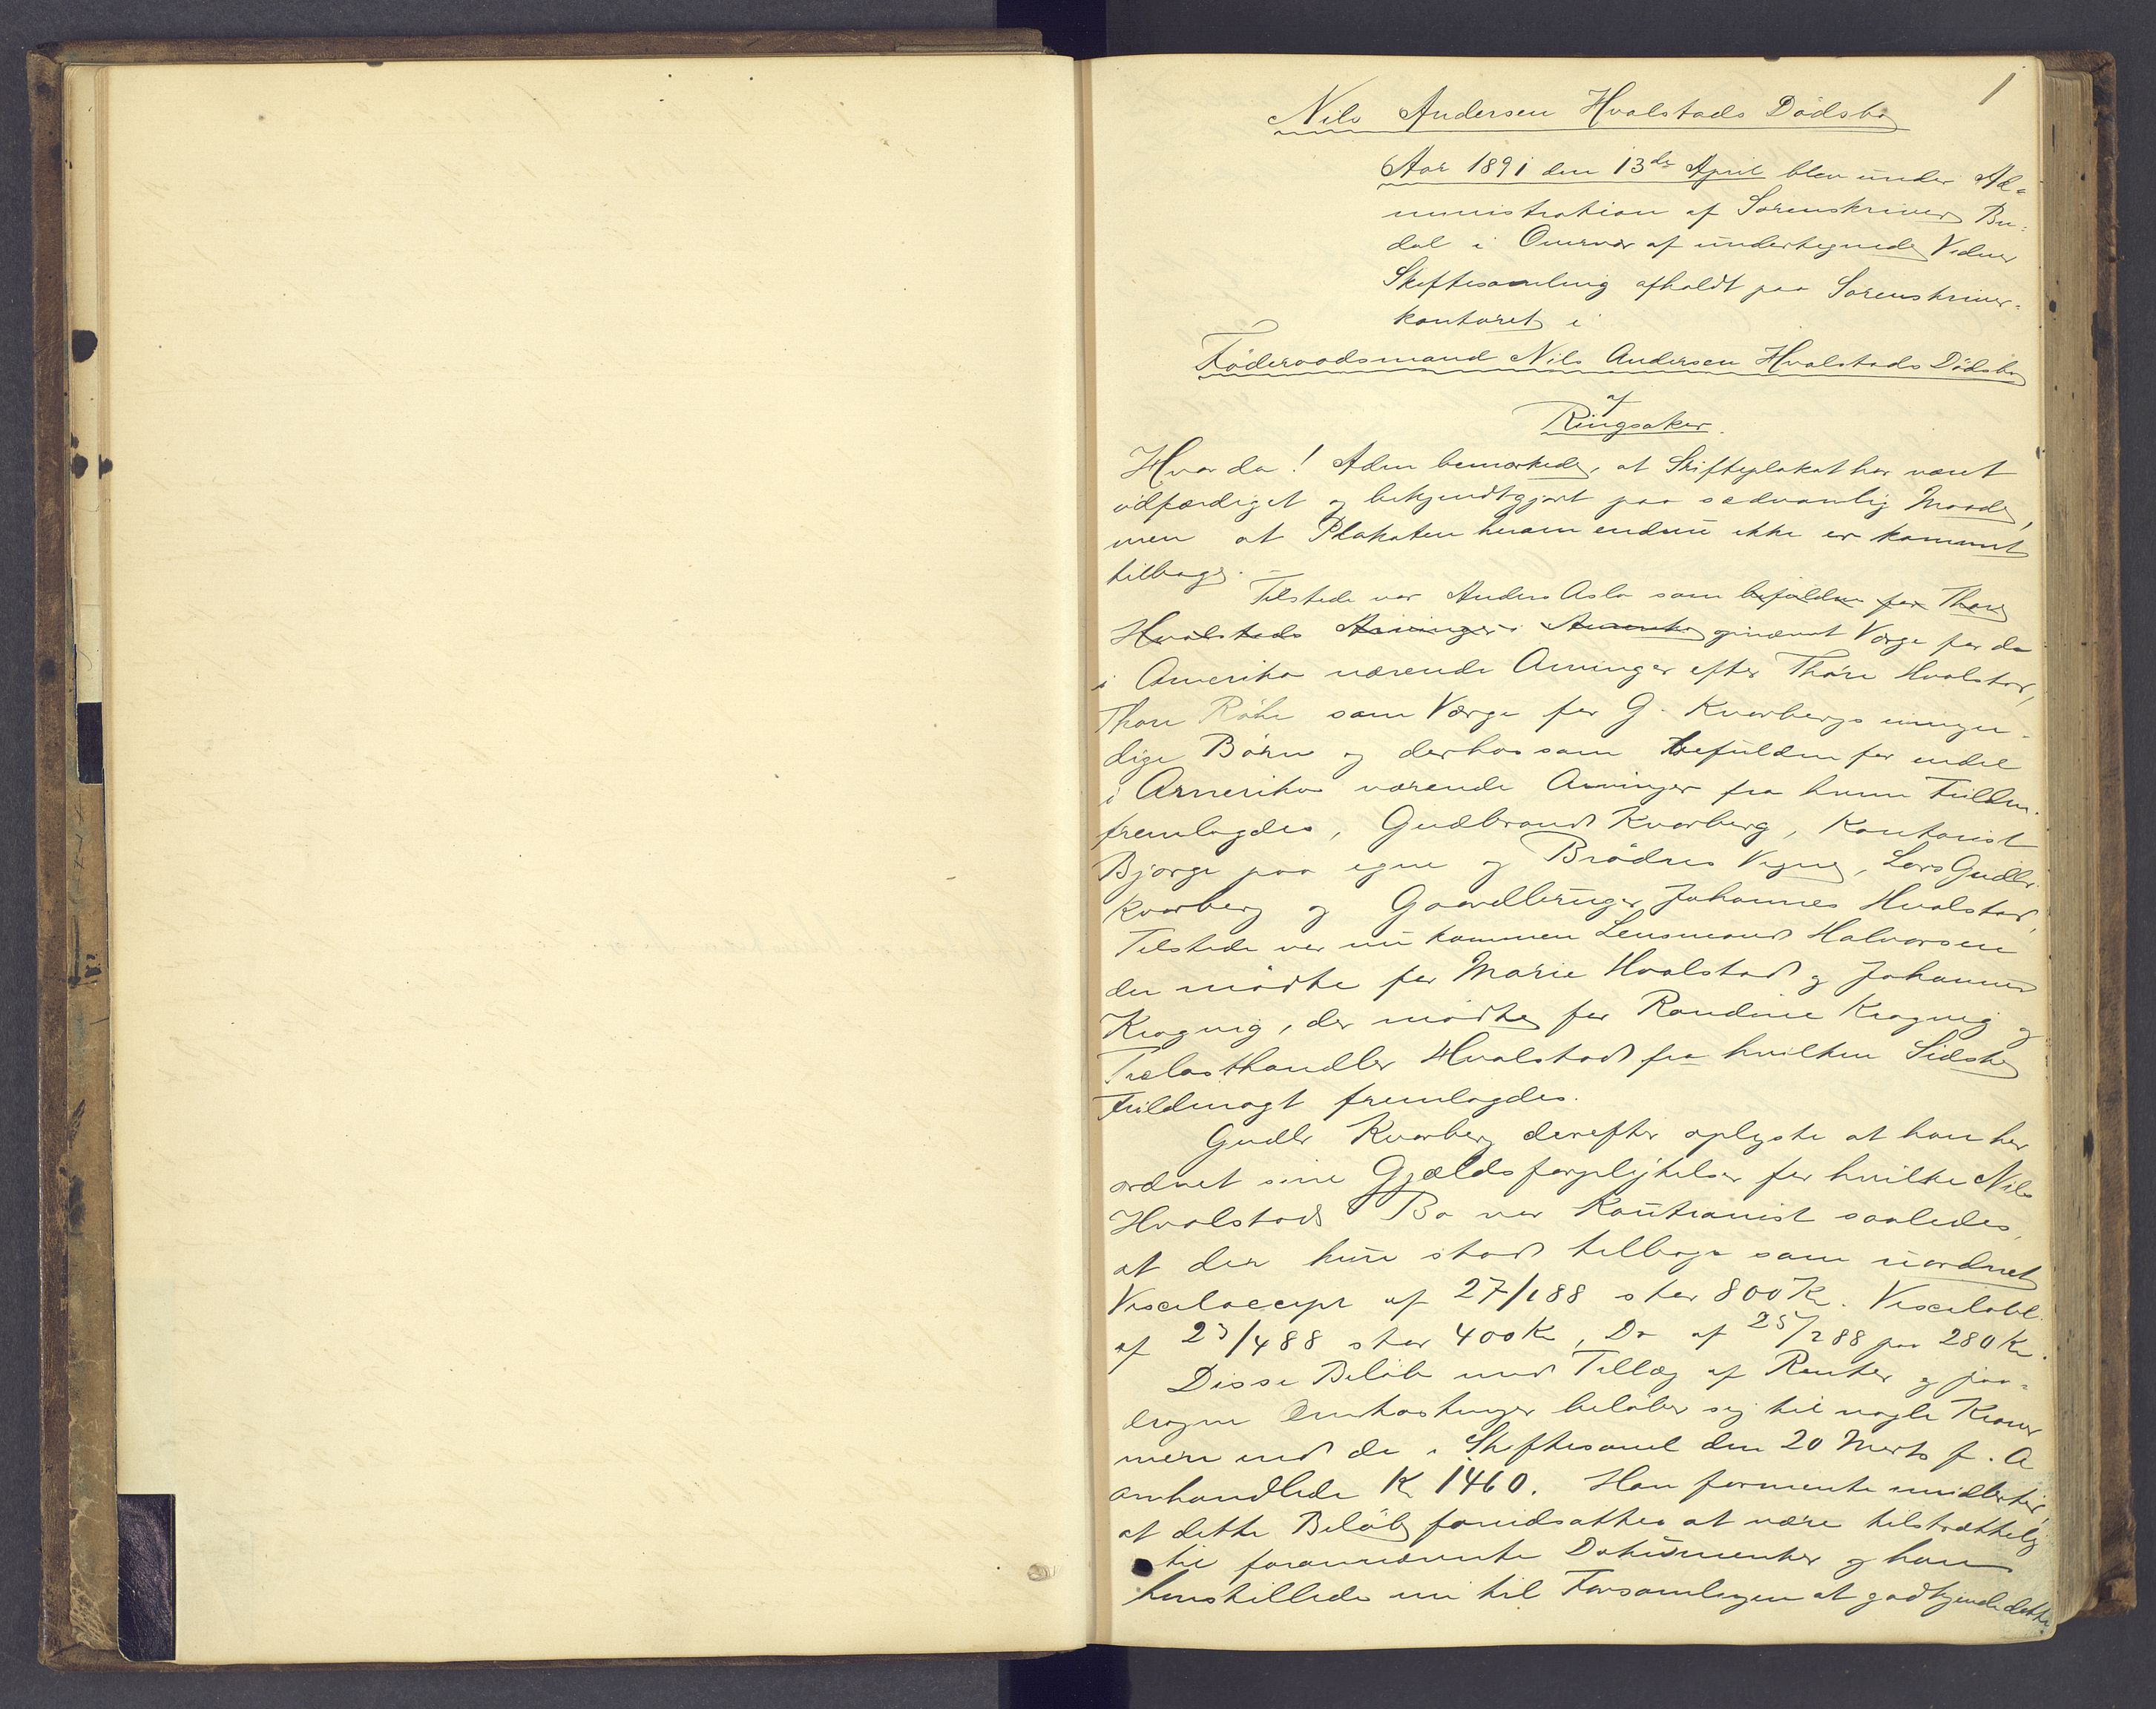 1
Nils Andersen Hvalstads Dödsbo
Aar 1891 den 13de April blev under Ad-
ministration af Sorenskriver Bu-
dal i Overvær af undertegnede Vidner
Skiftesamling afholdt paa Sorenskriver-
kontoret i
Föderaadsmand Nils Andersen Hvalstads Dödsbo
af
Ringsaker.
Hvor da! Adm bemærkede, at Skifteplakat har været
udfærdiget og bekjendtgjort paa sædvanlig Maade,
men at Plakaten herom endnu ikke er kommet
tilbage. –
Tilstede var Anders Aslo som befuldm for Thore
Hvalstads Arvinger i Amerika opnævnt Værge for de
i Amerika værende Arvinger efter Thore Hvalstad,
Thore Röhe som Værge for G. Kvarbergs umyn-
dige Börn og derhos som befuldm for endel
i Amerika værende Arvinger fra hvem Fuldm.
fremlagdes, Gudbrand Kvarberg, Kontorist
Bjørge paa egne og Brödres Vegne, Lars Gudbr.
Kvarberg og Gaardbruger Johannes Hvalstad,
Tilstede var nu kommen Lensmand Halvorsen
der mödte for Marie Hvalstad og Johannes
Krogvig, der mödte for Randine Krogvig og
Trælasthandler Hvalstad fra hvilken Sidste
Fuldmagt fremlagdes.
Gudbr Kvarberg derefter oplyste at han har
ordnet sine Gjældsforpligtelser for hvilke Nils
Hvalstads Bo var Kautionist saaledes,
at der kun stod tilbage som uordnet
Vexelaccept af 27/1 88 stor 800 Kr. Vexelobl.
af 23/4 88 stor 400 Kr, Do af 25/2 88 paa 280 Kr.
Disse Belöb med Tillæg af Renter og paa-
dragne Omkostninger belöber sig til nogle Kroner
mere end de i Skiftesaml den 20 Marts f. A
omhandlede Kr 1460. Han formente imidlertid,
at dette Belöb forudsattes at være tilstrækkelig
til forannævnte Dokumenter og han
henstillede nu til Forsamlingen at godkjende dette.